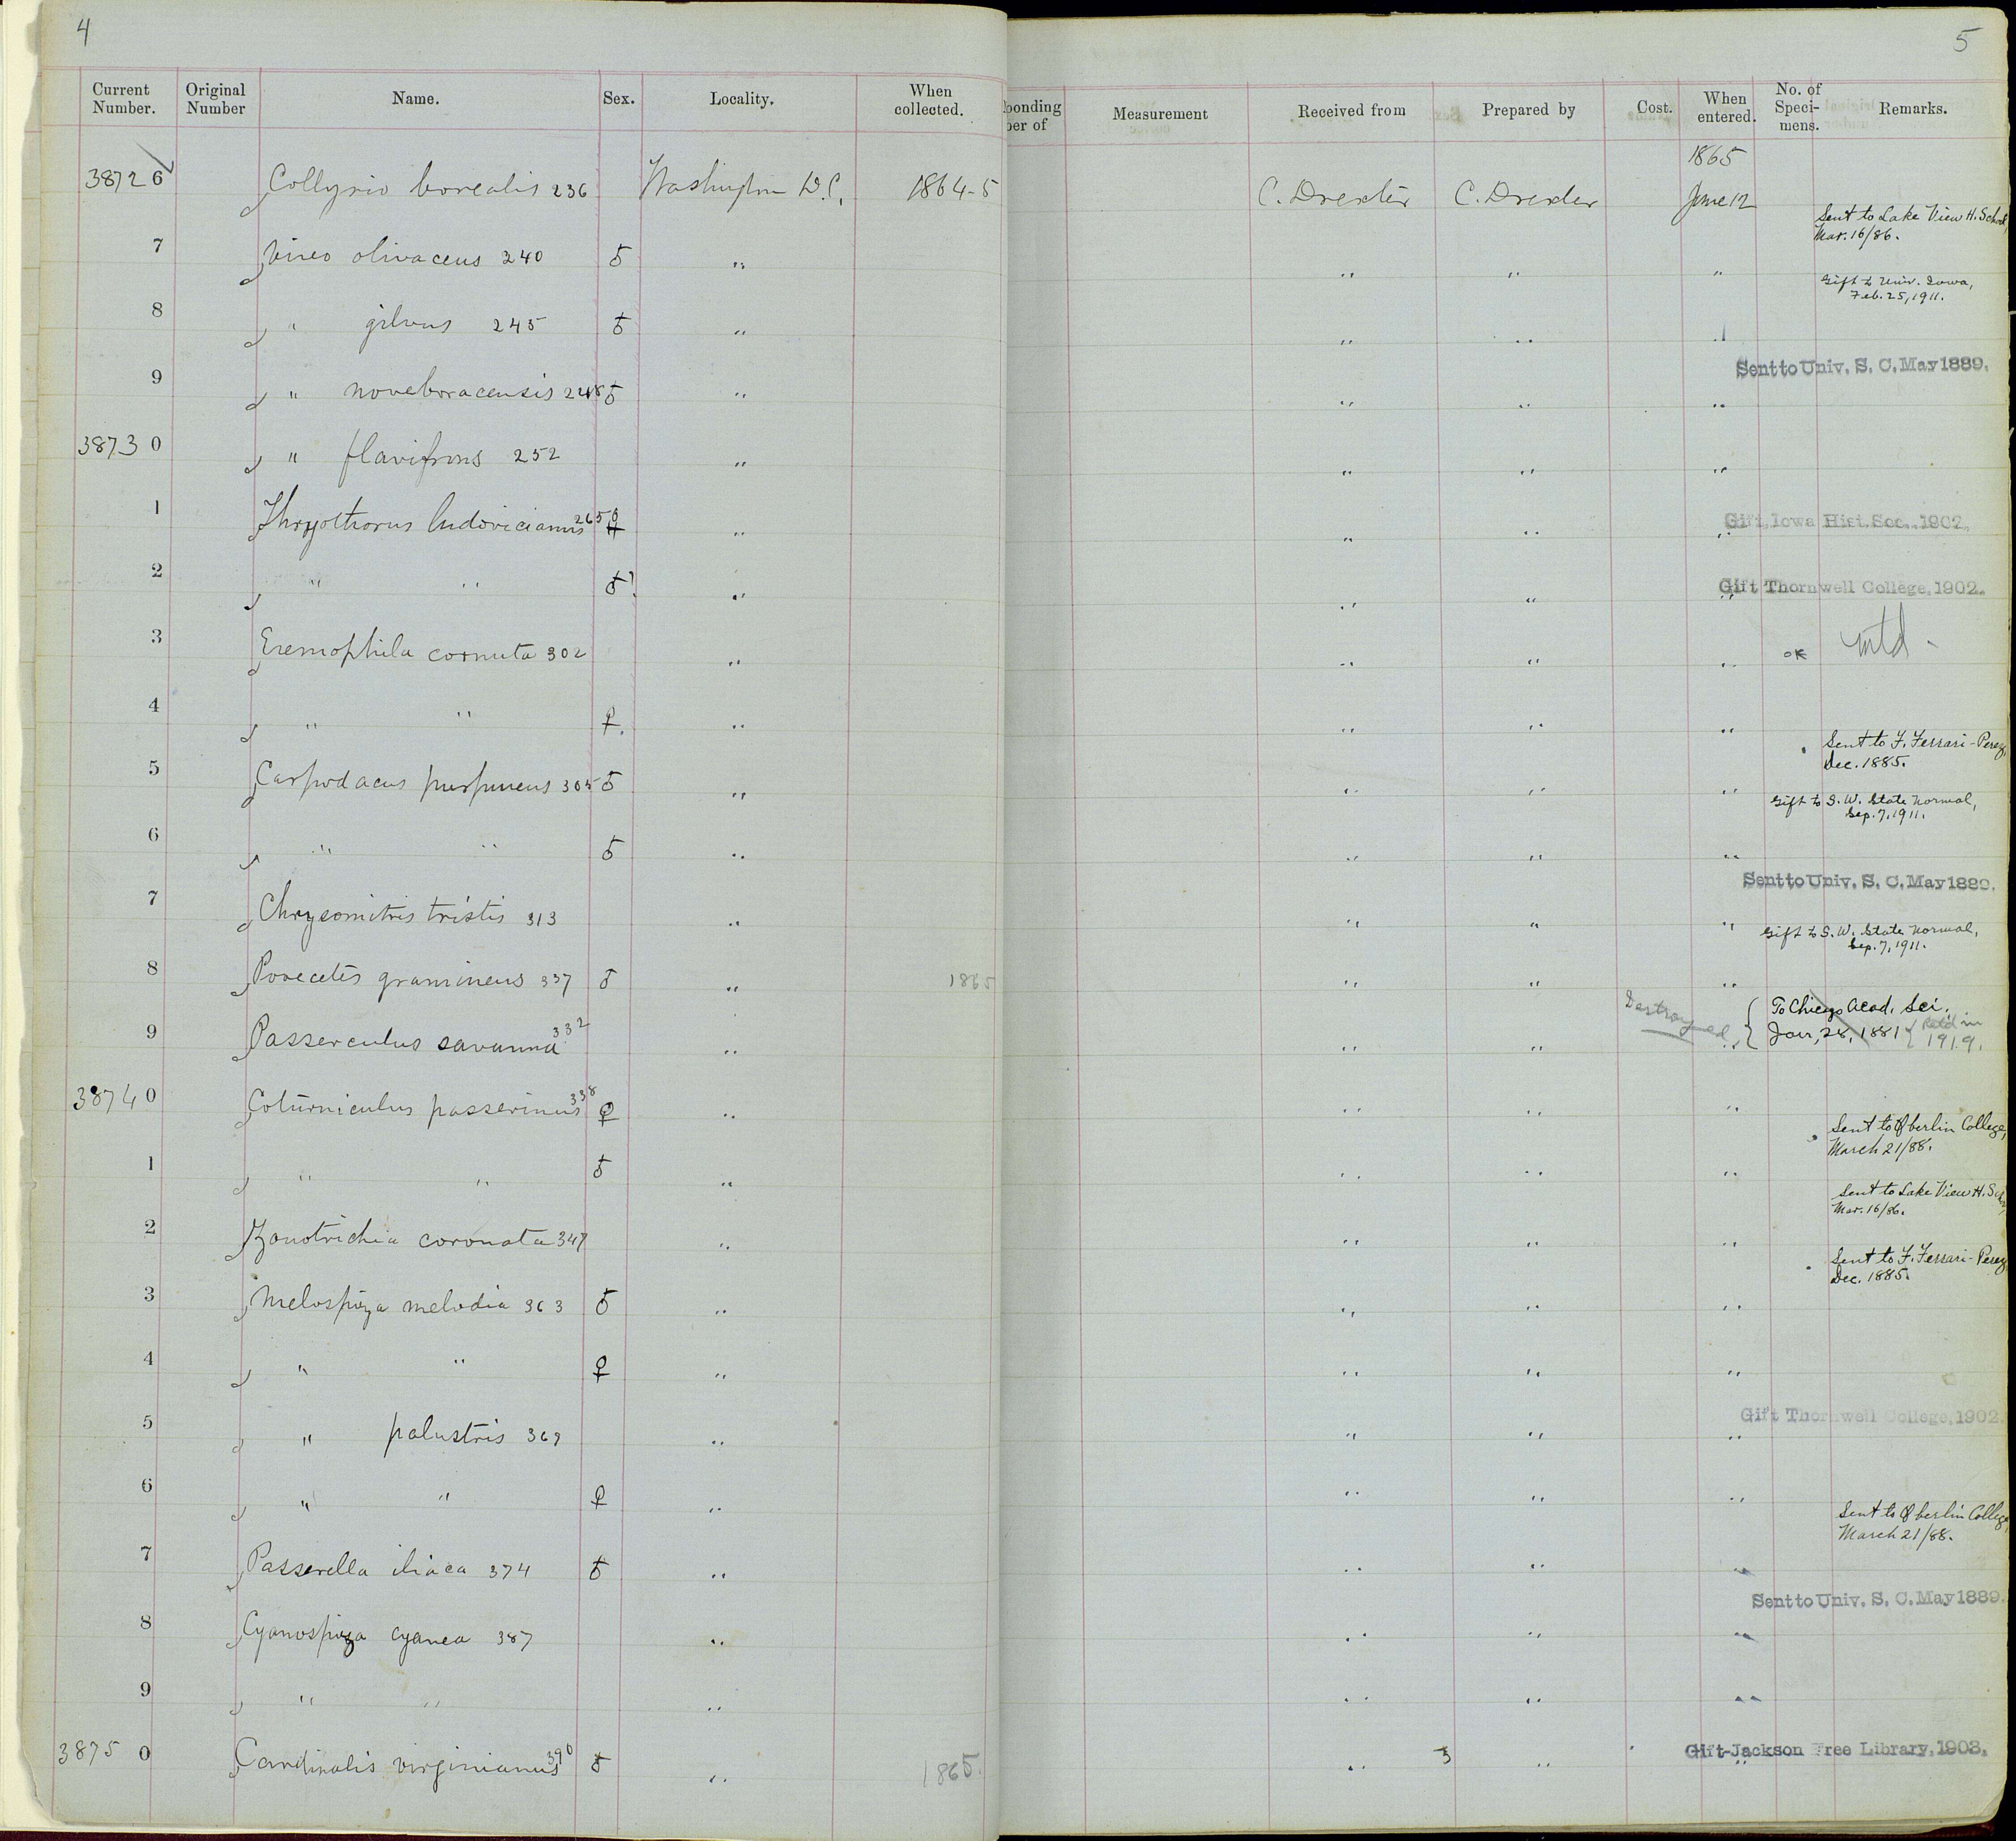 4
5
Current Number. Original Number Name. Sex. Locality. When collected. ponding ber of Measurement Received from Prepared by Cost. When entered. No. of Speci-mens. Remarks.
1865
38726 Collyrio borealis 236 Washington D.C. 1864-5 C. Drexler C. Drexler June 12
Sent to Lake View H. School,
Mar. 16/86.
7 Vireo olivaceus 240 ♂ " " " "
Gift to Univ. Iowa,
Feb. 25, 1911.
8 " gilvus 245 ♂ " " "
Sent to Univ. S. C. May 1889.
9 " noveboracensis 248 ♂ " " " "
38730 " flavifrons 252 " " " "
Gift, Iowa Hist. Soc., 1902.
1 Thryothorus ludovicianus 265 ♀ " " " "
Gift Thornwell College, 1902.
2 " " ♂? " " " "
3 Eremophila cornuta 302 " " " " OK mtd -
4 " " ♀. " " " "
Sent to F. Ferrari-Perez,
Dec. 1885.
5 Carpodacus purpureus 305 ♂ " " " "
Gift to S. W. State Normal,
Sep. 7, 1911.
6 " " ♂ " " " "
Sent to Univ. S. C. May 1889.
7 Chrysomitris tristis 313 " " " "
Gift to S. W. State Normal,
Sep. 7, 1911.
8 Poocetes gramineus 337 ♂ " 1865 " " "
Destroyed { To Chicago Acad. Sci.
Jan, 28, 1881 { Ret'd in
1919.
9 Passerculus savanna 332 " " " "
38740 Coturniculus passerinus 338 ♀ " " " "
Sent to Oberlin College,
March 21/88.
1 " " ♂ " " " "
Sent to Lake View H. Sch
Mar. 16/86.
2 Zonotrichia coronata 347 " " " "
Sent to F. Ferrari-Perez
Dec. 1885.
3 Melospiza melodia 363 ♂ " " " "
4 " " ♀ " " " "
Gift Thornwell College, 1902.
5 " palustris 369 " " " "
6 " " ♀ " " " "
Sent to Oberlin College
March 21/88.
7 Passerella iliaca 374 ♂ " " " "
Sent to Univ. S. C. May 1889.
8 Cyanospiza cyanea 387 " " " "
9 " " " " " "
Gift-Jackson Free Library, 1903.
38750 Cardinalis virginianus 390 ♂ " 1865. " " "